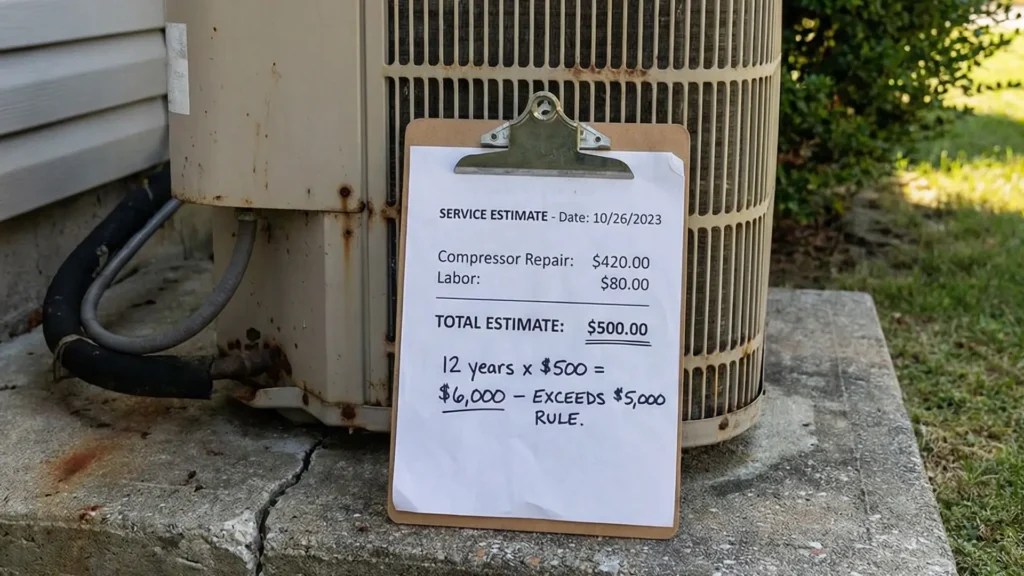 SERVICE ESTIMATE - Date: 10/26/2023
Compressor Repair: $420.00
Labor: $80.00
TOTAL ESTIMATE: $500.00
12 years x $500 =
$6,000 – EXCEEDS $5,000
RULE.